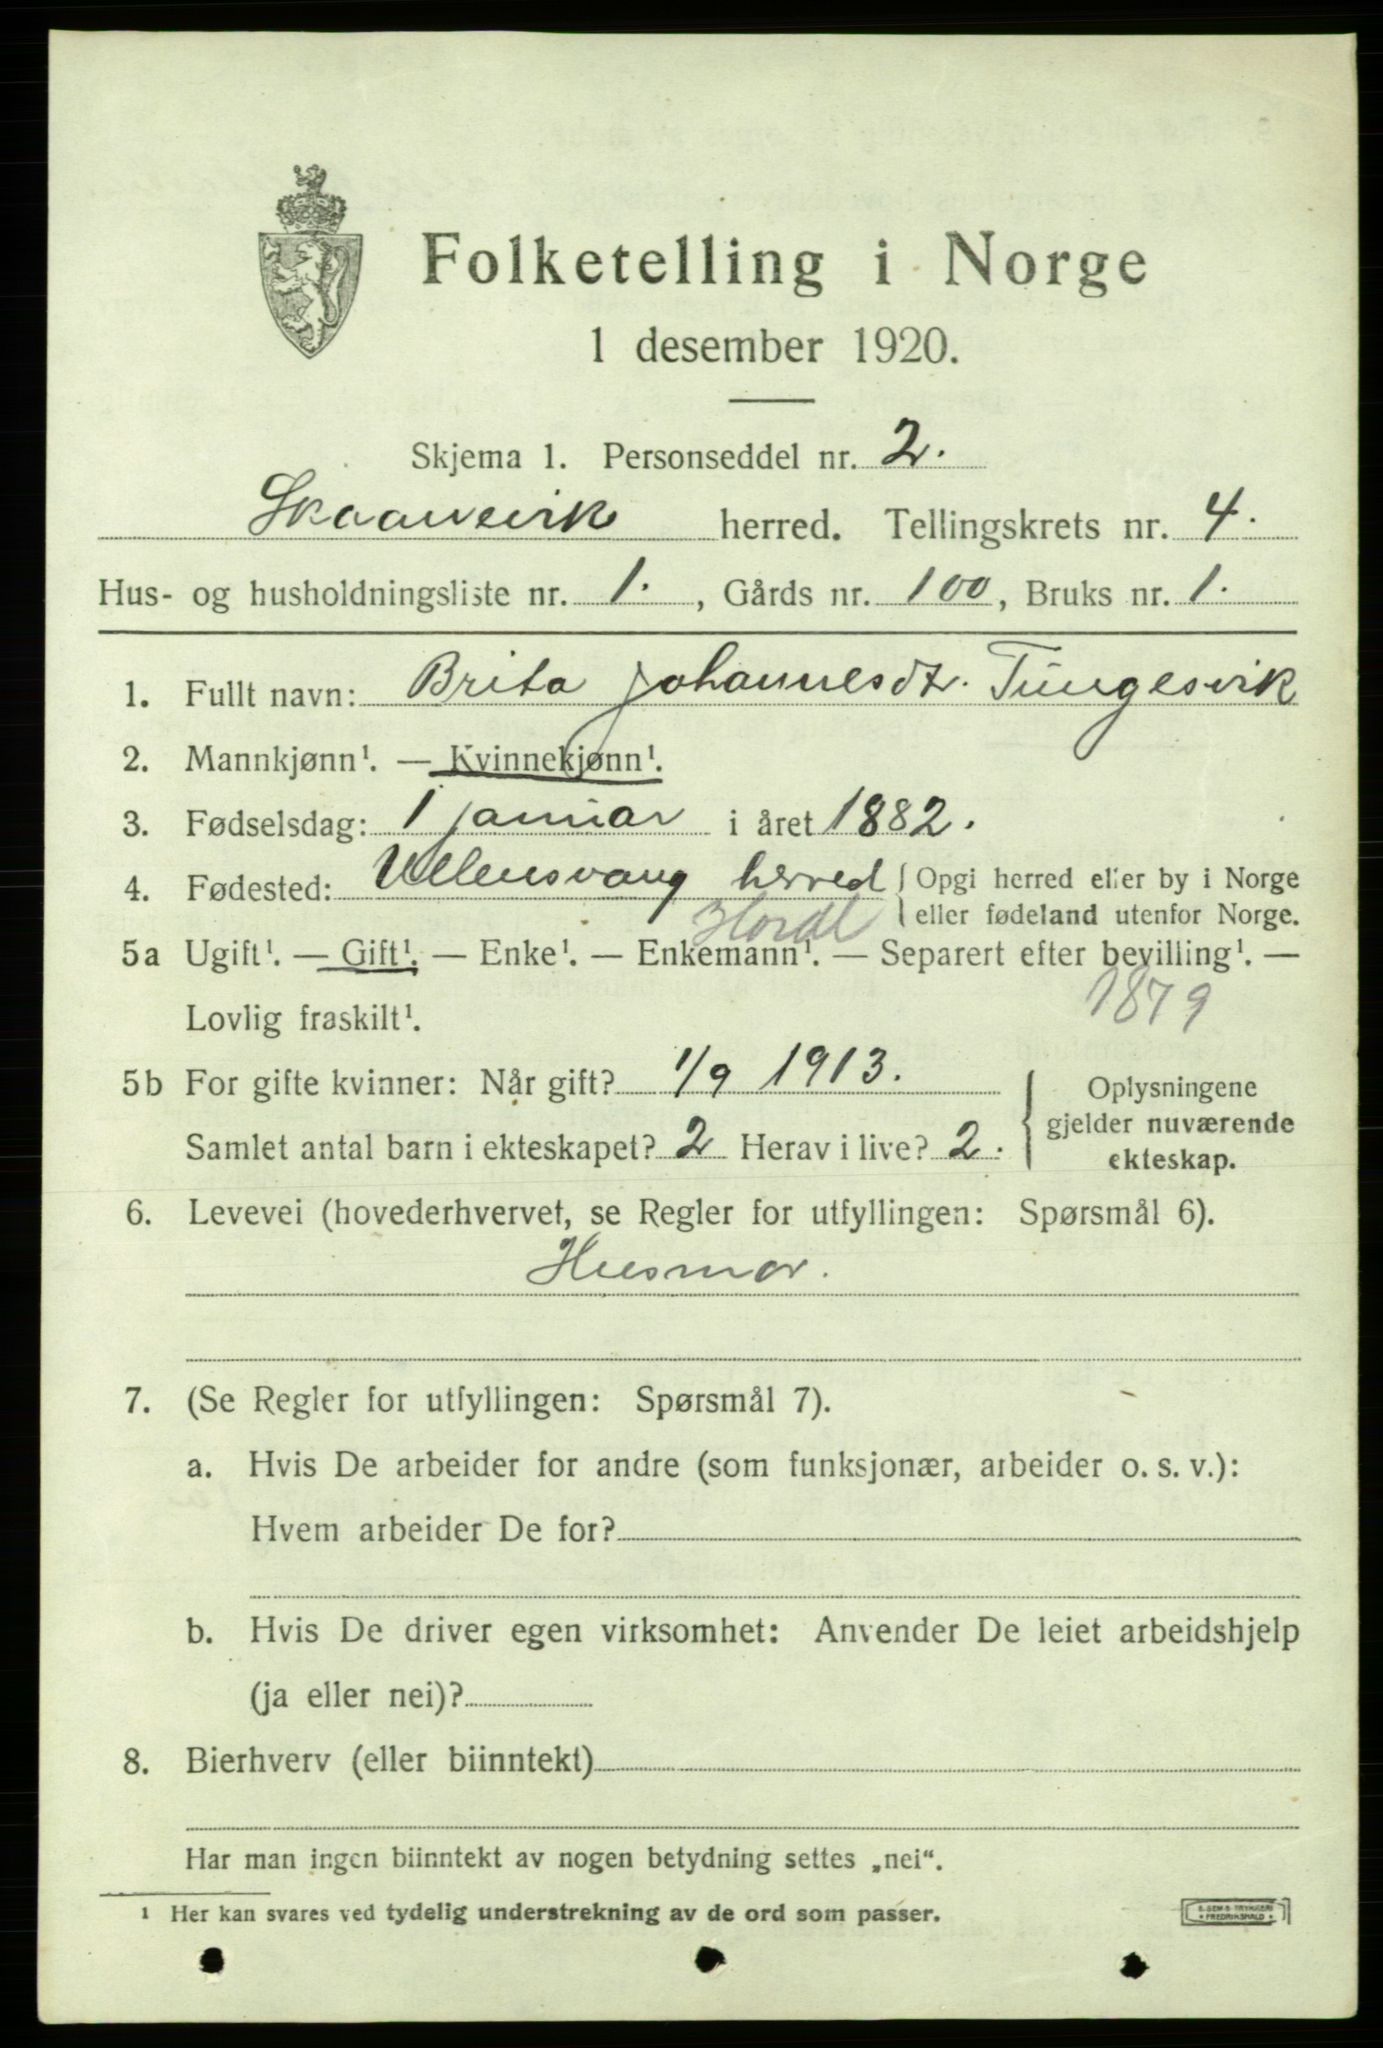 Folketelling i Norge
1 desember 1920.
Skjema 1. Personseddel nr. 2.
Skaanevik herred. Tellingskrets nr. 4.
Hus- og husholdningsliste nr. 1., Gårds nr. 100, Bruks nr. 1.
1. Fullt navn: Brita Johannesdtr. Tungesvik
2. Mannkjønn¹. — Kvinnekjønn¹.
3. Fødselsdag: 1 januar i året 1882.
4. Fødested: Ullensvang herred { Opgi herred eller by i Norge
eller fødeland utenfor Norge.
Hordl
5a Ugift¹. — Gift¹. — Enke¹. — Enkemann¹. — Separert efter bevilling¹. —
Lovlig fraskilt¹.
1879
5b For gifte kvinner: Når gift? 1/9 1913.
Samlet antal barn i ekteskapet? 2 Herav i live? 2.
{ Oplysningene
gjelder nuværende
ekteskap.
6. Levevei (hovederhvervet, se Regler for utfyllingen: Spørsmål 6).
Husmor.
7. (Se Regler for utfyllingen: Spørsmål 7).
a. Hvis De arbeider for andre (som funksjonær, arbeider o. s. v.):
Hvem arbeider De for?
b. Hvis De driver egen virksomhet: Anvender De leiet arbeidshjelp
(ja eller nei)?
8. Bierhverv (eller biinntekt)
Har man ingen biinntekt av nogen betydning settes „nei“.
1 Her kan svares ved tydelig understrekning av de ord som passer.
E. SEM'S TRYKKERI
• FREDRIKSHALD •